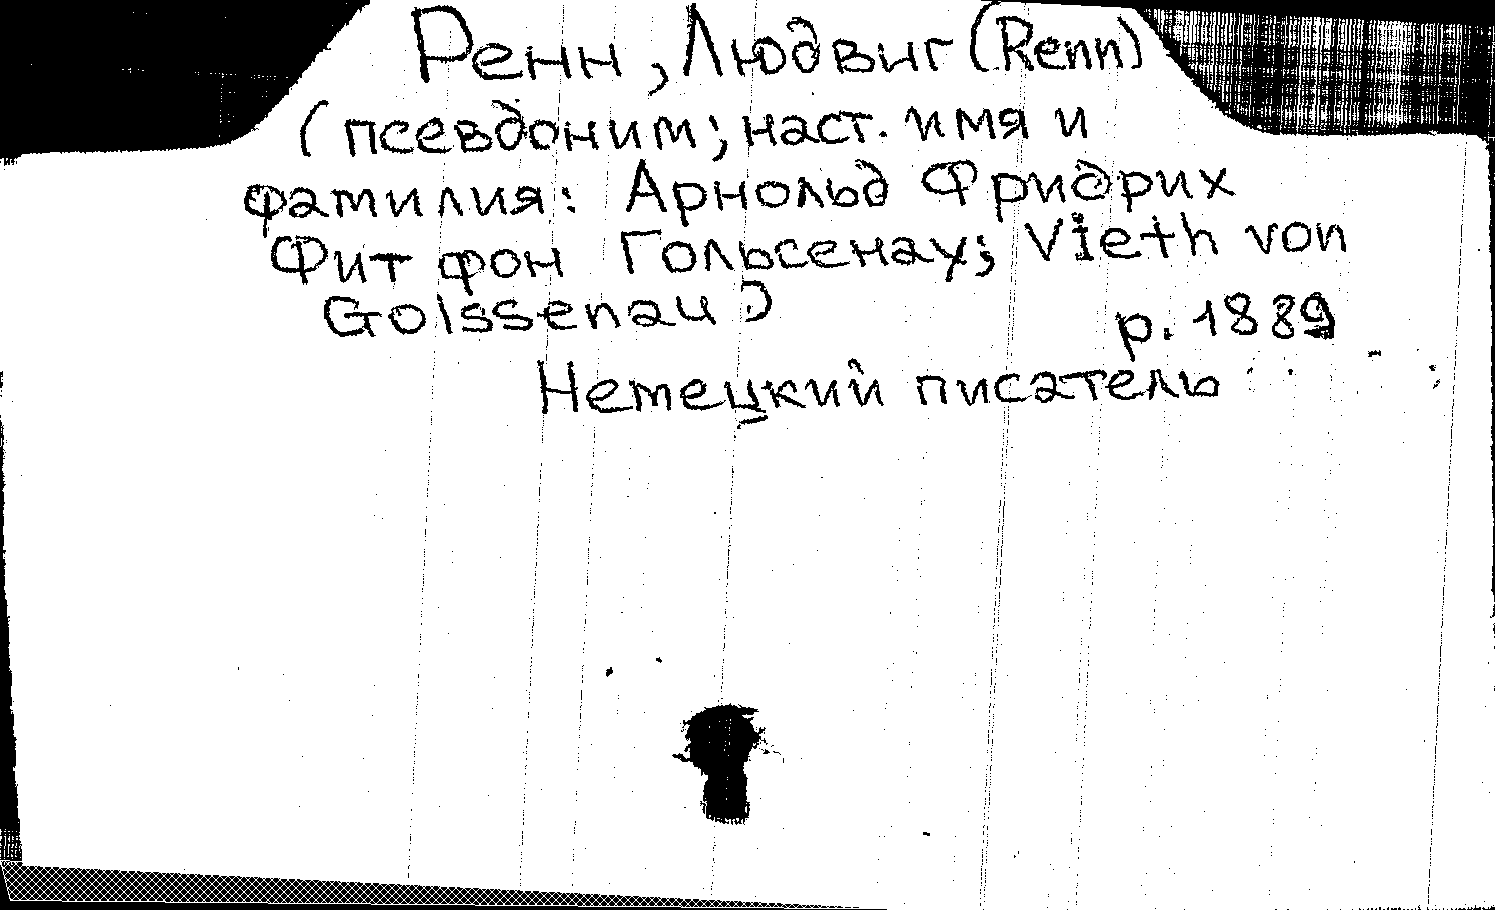 Ренн, Людвиг (Renn)
(псевдоним; наст. имя и
фамилия: Арнольд Фридрих
Фит фон Гольсенау; Vieth von
Golssenau)
р. 1889
Немецкий писатель